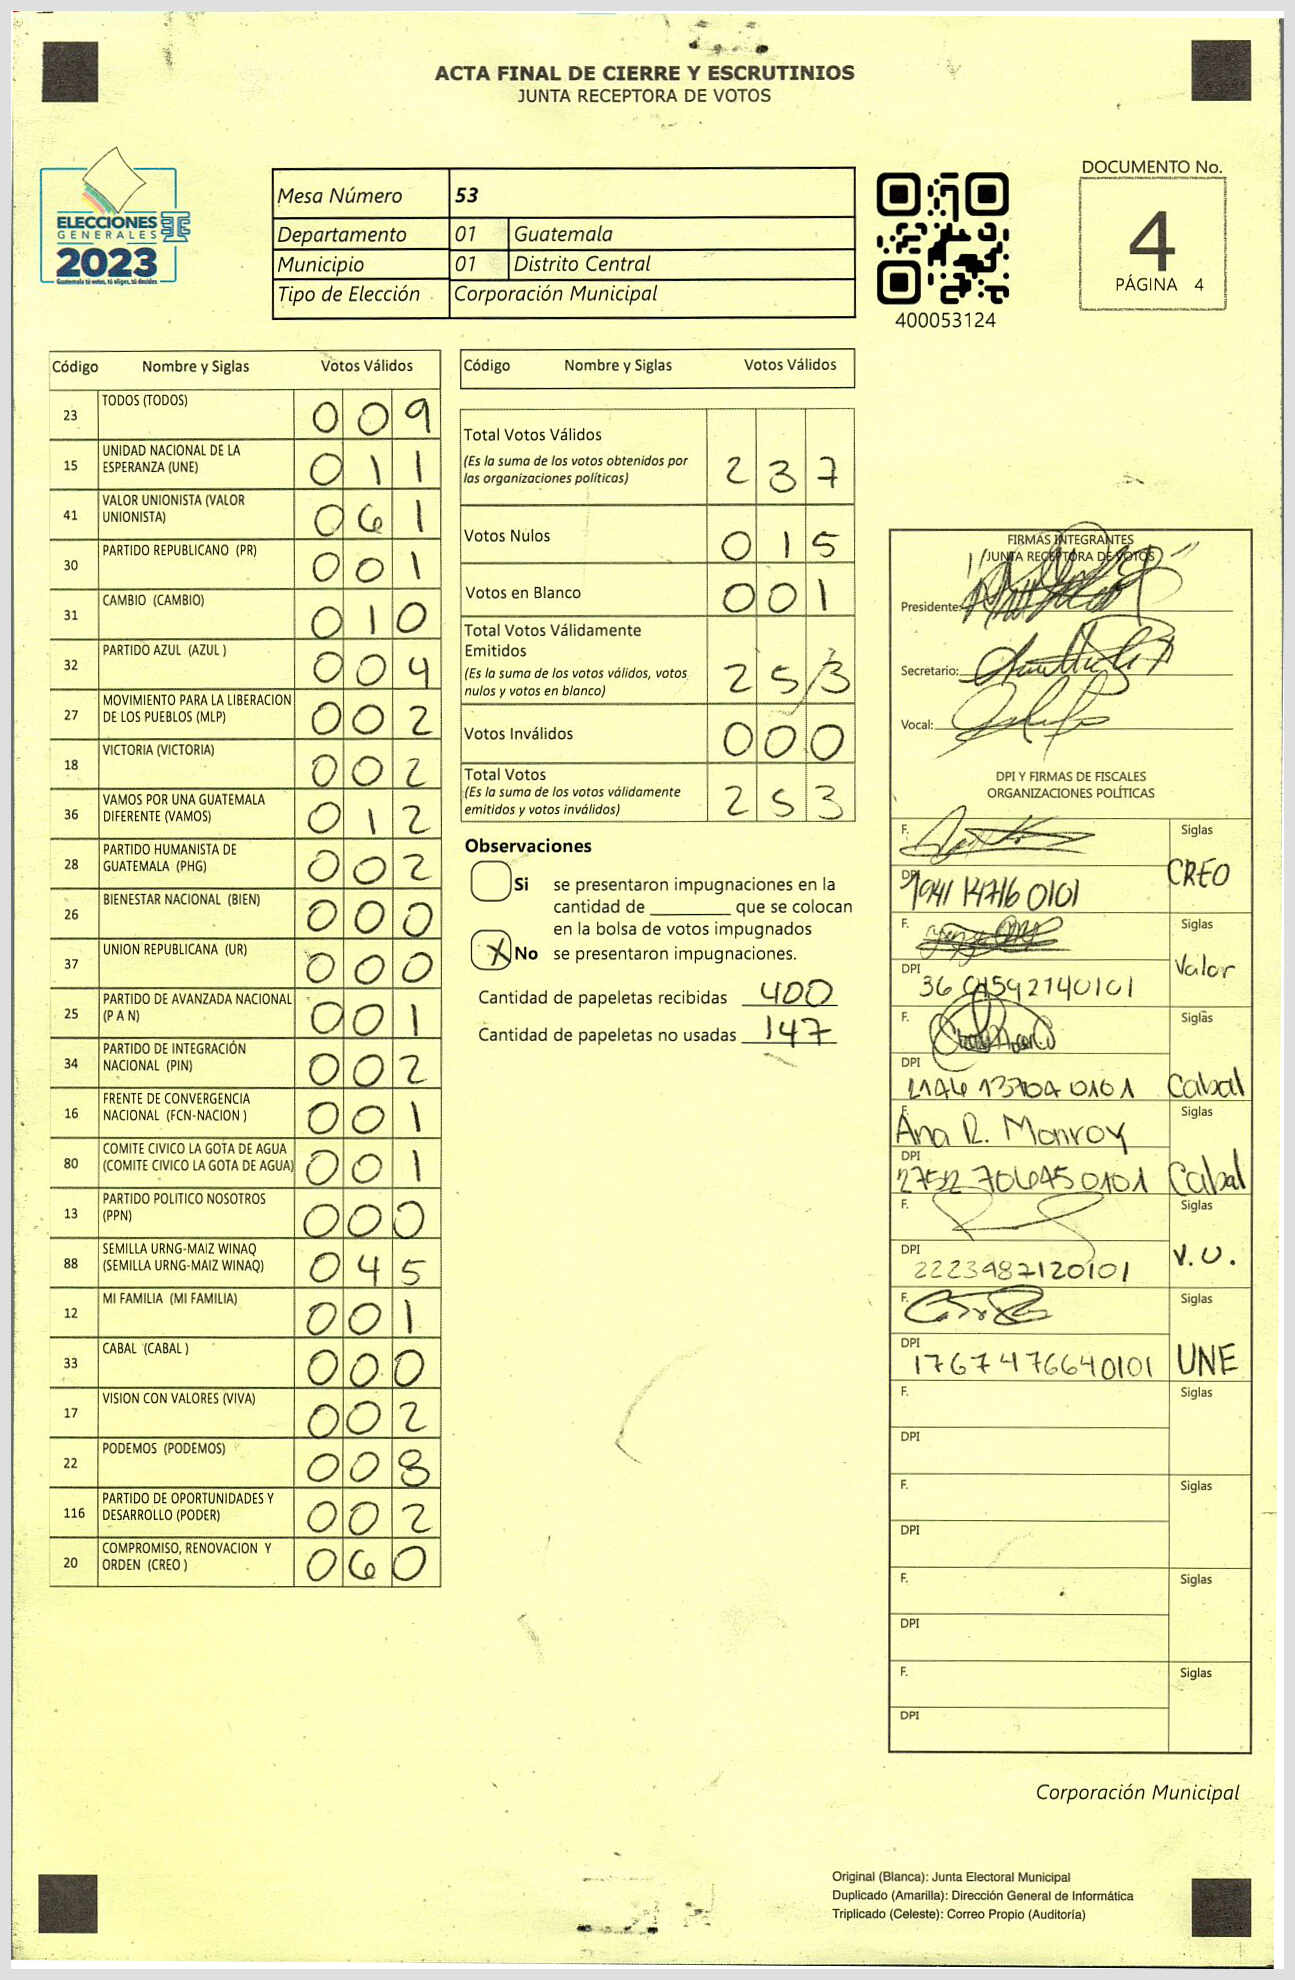 ACTA FINAL DE CIERRE Y ESCRUTINIOS
JUNTA RECEPTORA DE VOTOS
ELECCIONES
GENERALES
2023
Guatemala tú votas, tú eliges, tú decides
Mesa Número 53
Departamento 01 Guatemala
Municipio 01 Distrito Central
Tipo de Elección Corporación Municipal
400053124
DOCUMENTO No.
4
PÁGINA 4
Código Nombre y Siglas Votos Válidos
23 TODOS (TODOS) 009
15 UNIDAD NACIONAL DE LA ESPERANZA (UNE) 011
41 VALOR UNIONISTA (VALOR UNIONISTA) 061
30 PARTIDO REPUBLICANO (PR) 001
31 CAMBIO (CAMBIO) 010
32 PARTIDO AZUL (AZUL ) 004
27 MOVIMIENTO PARA LA LIBERACION DE LOS PUEBLOS (MLP) 002
18 VICTORIA (VICTORIA) 002
36 VAMOS POR UNA GUATEMALA DIFERENTE (VAMOS) 012
28 PARTIDO HUMANISTA DE GUATEMALA (PHG) 002
26 BIENESTAR NACIONAL (BIEN) 000
37 UNION REPUBLICANA (UR) 000
25 PARTIDO DE AVANZADA NACIONAL (P A N) 001
34 PARTIDO DE INTEGRACIÓN NACIONAL (PIN) 002
16 FRENTE DE CONVERGENCIA NACIONAL (FCN-NACION ) 001
80 COMITE CIVICO LA GOTA DE AGUA (COMITE CIVICO LA GOTA DE AGUA) 001
13 PARTIDO POLITICO NOSOTROS (PPN) 000
88 SEMILLA URNG-MAIZ WINAQ (SEMILLA URNG-MAIZ WINAQ) 045
12 MI FAMILIA (MI FAMILIA) 001
33 CABAL (CABAL ) 000
17 VISION CON VALORES (VIVA) 002
22 PODEMOS (PODEMOS) 008
116 PARTIDO DE OPORTUNIDADES Y DESARROLLO (PODER) 002
20 COMPROMISO, RENOVACION Y ORDEN (CREO ) 060
Código Nombre y Siglas Votos Válidos
Total Votos Válidos 237
(Es la suma de los votos obtenidos por
las organizaciones políticas)
Votos Nulos 015
Votos en Blanco 001
Total Votos Válidamente
Emitidos 253
(Es la suma de los votos válidos, votos
nulos y votos en blanco)
Votos Inválidos 000
Total Votos 253
(Es la suma de los votos válidamente
emitidos y votos inválidos)
Observaciones
Si se presentaron impugnaciones en la
cantidad de ________ que se colocan
en la bolsa de votos impugnados
X No se presentaron impugnaciones.
Cantidad de papeletas recibidas 400
Cantidad de papeletas no usadas 147
FIRMAS INTEGRANTES
JUNTA RECEPTORA DE VOTOS
Presidente:
Secretario:
Vocal:
DPI Y FIRMAS DE FISCALES
ORGANIZACIONES POLÍTICAS
F. Siglas
DPI 1941 14716 0101 CREO
F. Siglas
DPI Valor
F. Siglas
DPI Cabal
F. Ana R. Monroy Siglas
DPI 2752 70645 0101 Cabal
F. Siglas
DPI 2223987120101 V.U.
F. Siglas
DPI 1767476640101 UNE
F. Siglas
DPI
F. Siglas
DPI
F. Siglas
DPI
F. Siglas
DPI
Corporación Municipal
Original (Blanca): Junta Electoral Municipal
Duplicado (Amarilla): Dirección General de Informática
Triplicado (Celeste): Correo Propio (Auditoría)